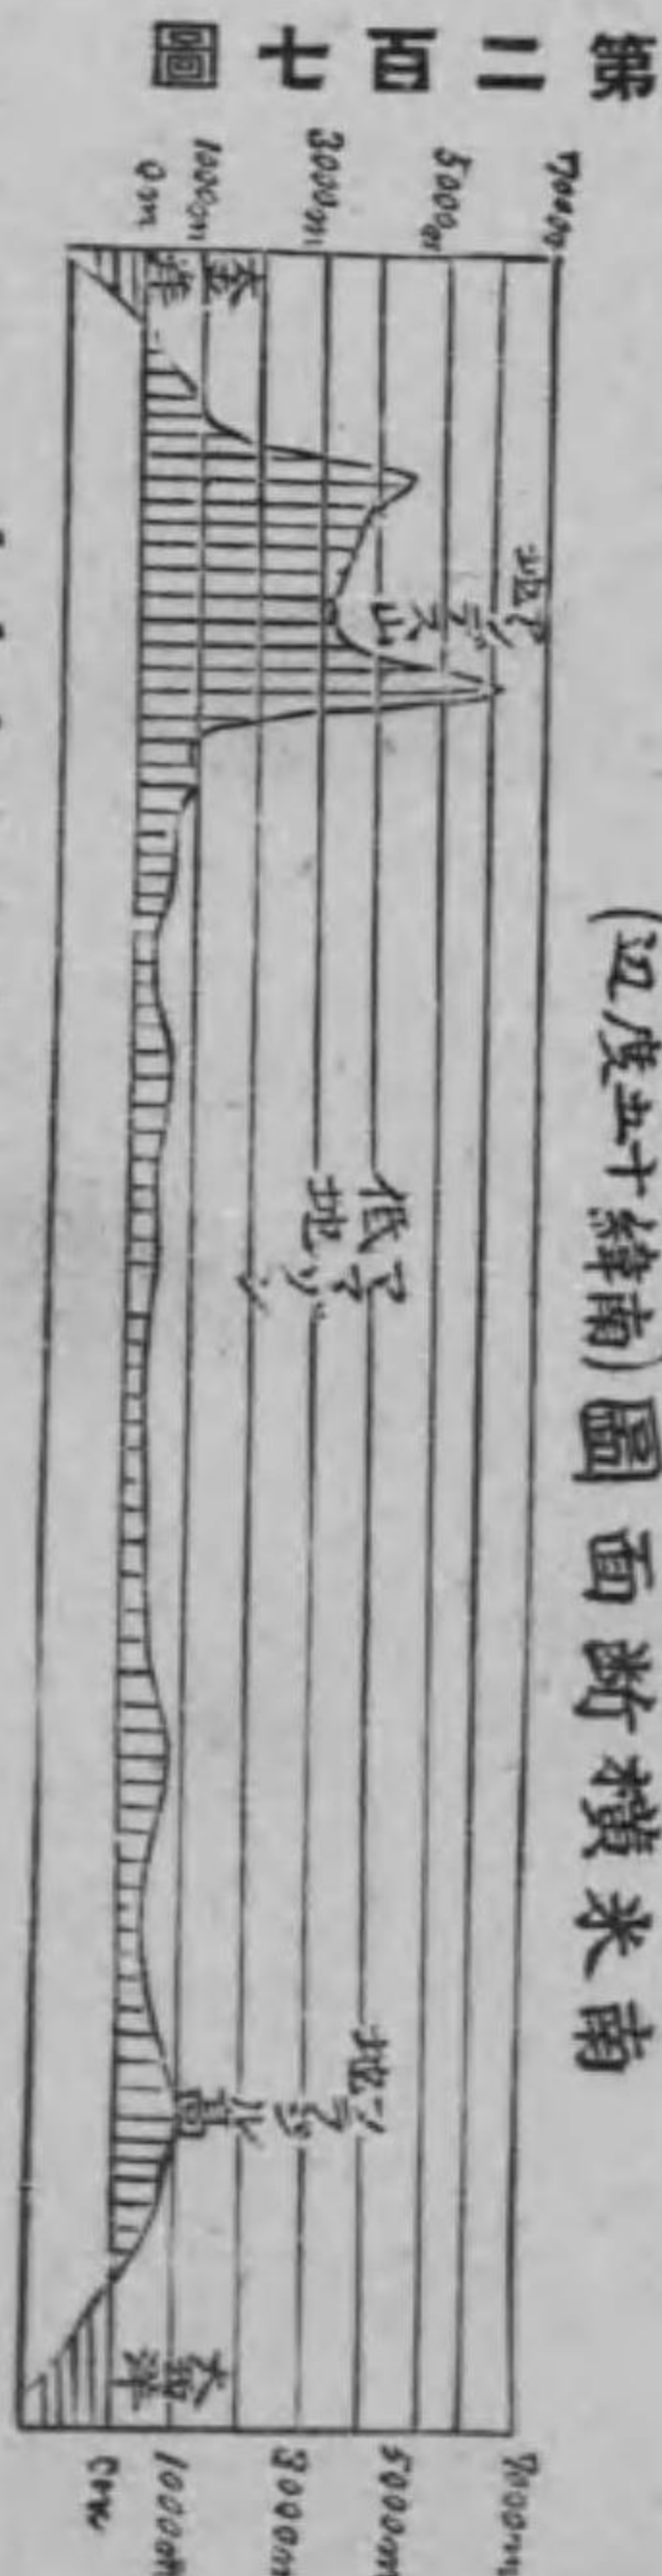 第二百七圖
南米横断面圖(南緯十五度辺)
7000m
5000m
3000m
1000m
0m
太平洋
アンデス山地
アマゾン低地
ブラジル高地
大西洋
7000m
5000m
3000m
1000m
0m